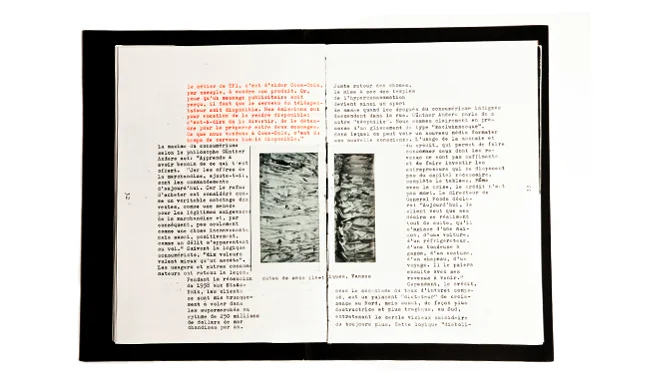 le métier de TF1, c'est d'aider Coca-Cola,
par exemple, à vendre son produit. Or,
pour qu'un message publicitaire soit
perçu, il faut que le cerveau du téléspec-
tateur soit disponible. Nos émissions ont
pour vocation de le rendre disponible:
c'est-à-dire de le divertir, de le déten-
dre pour le préparer entre deux messages.
Ce que nous vendons à Coca-Cola, c'est du
temps de cerveau humain disponible."
La maxime du consumérisme
selon le philosophe Günther
Anders est: "Apprends à
avoir besoin de ce qui t'est
offert. "Car les offres de
la marchandise,
sont les commandements
d'aujourd'hui. Car le refus
d'acheter est considéré com-
me un véritable sabotage des
ventes, comme une menace
pour les légitimes exigences
de la marchandise et, par
conséquent, pas seulement
comme une chose
mais aussi, positivement,
comme un délit s'apparentant
au vol." Suivant la logique
consumériste, "Dix voleurs
valent mieux qu'un ascète".
Les usagers et autres consom-
mateurs ont retenu la leçon.
Pendant la récession
de 1958 aux États-
Unis, les clients
se sont mis brusque-
ment à voler dans
les supermarchés au
rythme de 250 millions
de dollars de mar-
chandises par an.
Juste retour des choses,
la mise à sac des temples
de l'hyperconsommation
devient ainsi un sport
de masse quand les drogués du consumérisme intégré
descendent dans la rue. Günther Anders parle de
notre "néophilie". Nous sommes clairement en pré-
sence d'un glissement de type "machinesque",
dans lequel on peut voir un nouveau média formater
une nouvelle conscience. L'usage de la monnaie et
du crédit, qui permet de faire
consommer ceux dont les re-
venus ne sont pas suffisants
et de faire investir les
entrepreneurs qui ne disposent
pas de capital nécessaire,
complète le tableau. Même
avec la crise, le crédit n'est
pas mort. Le directeur de
General Foods décla-
rait "Aujourd'hui, le
client veut que ses
désirs se réalisent
tout de suite, qu'il
s'agisse d'une mai-
son, d'une voiture,
d'un réfrigérateur,
d'une tondeuse à
gazon, d'un costume,
d'un chapeau, d'un
voyage. Il le paiera
ensuite avec ses
revenus à venir."
Cependant, le crédit,
avec la servitude du taux d'intérêt compo-
sé, est un puissant "dictateur" de crois-
sance au Nord, mais aussi, de façon plus
destructrice et plus tragique, au Sud,
entretenant le cercle vicieux suicidaire
du toujours plus. Cette logique "dictato-